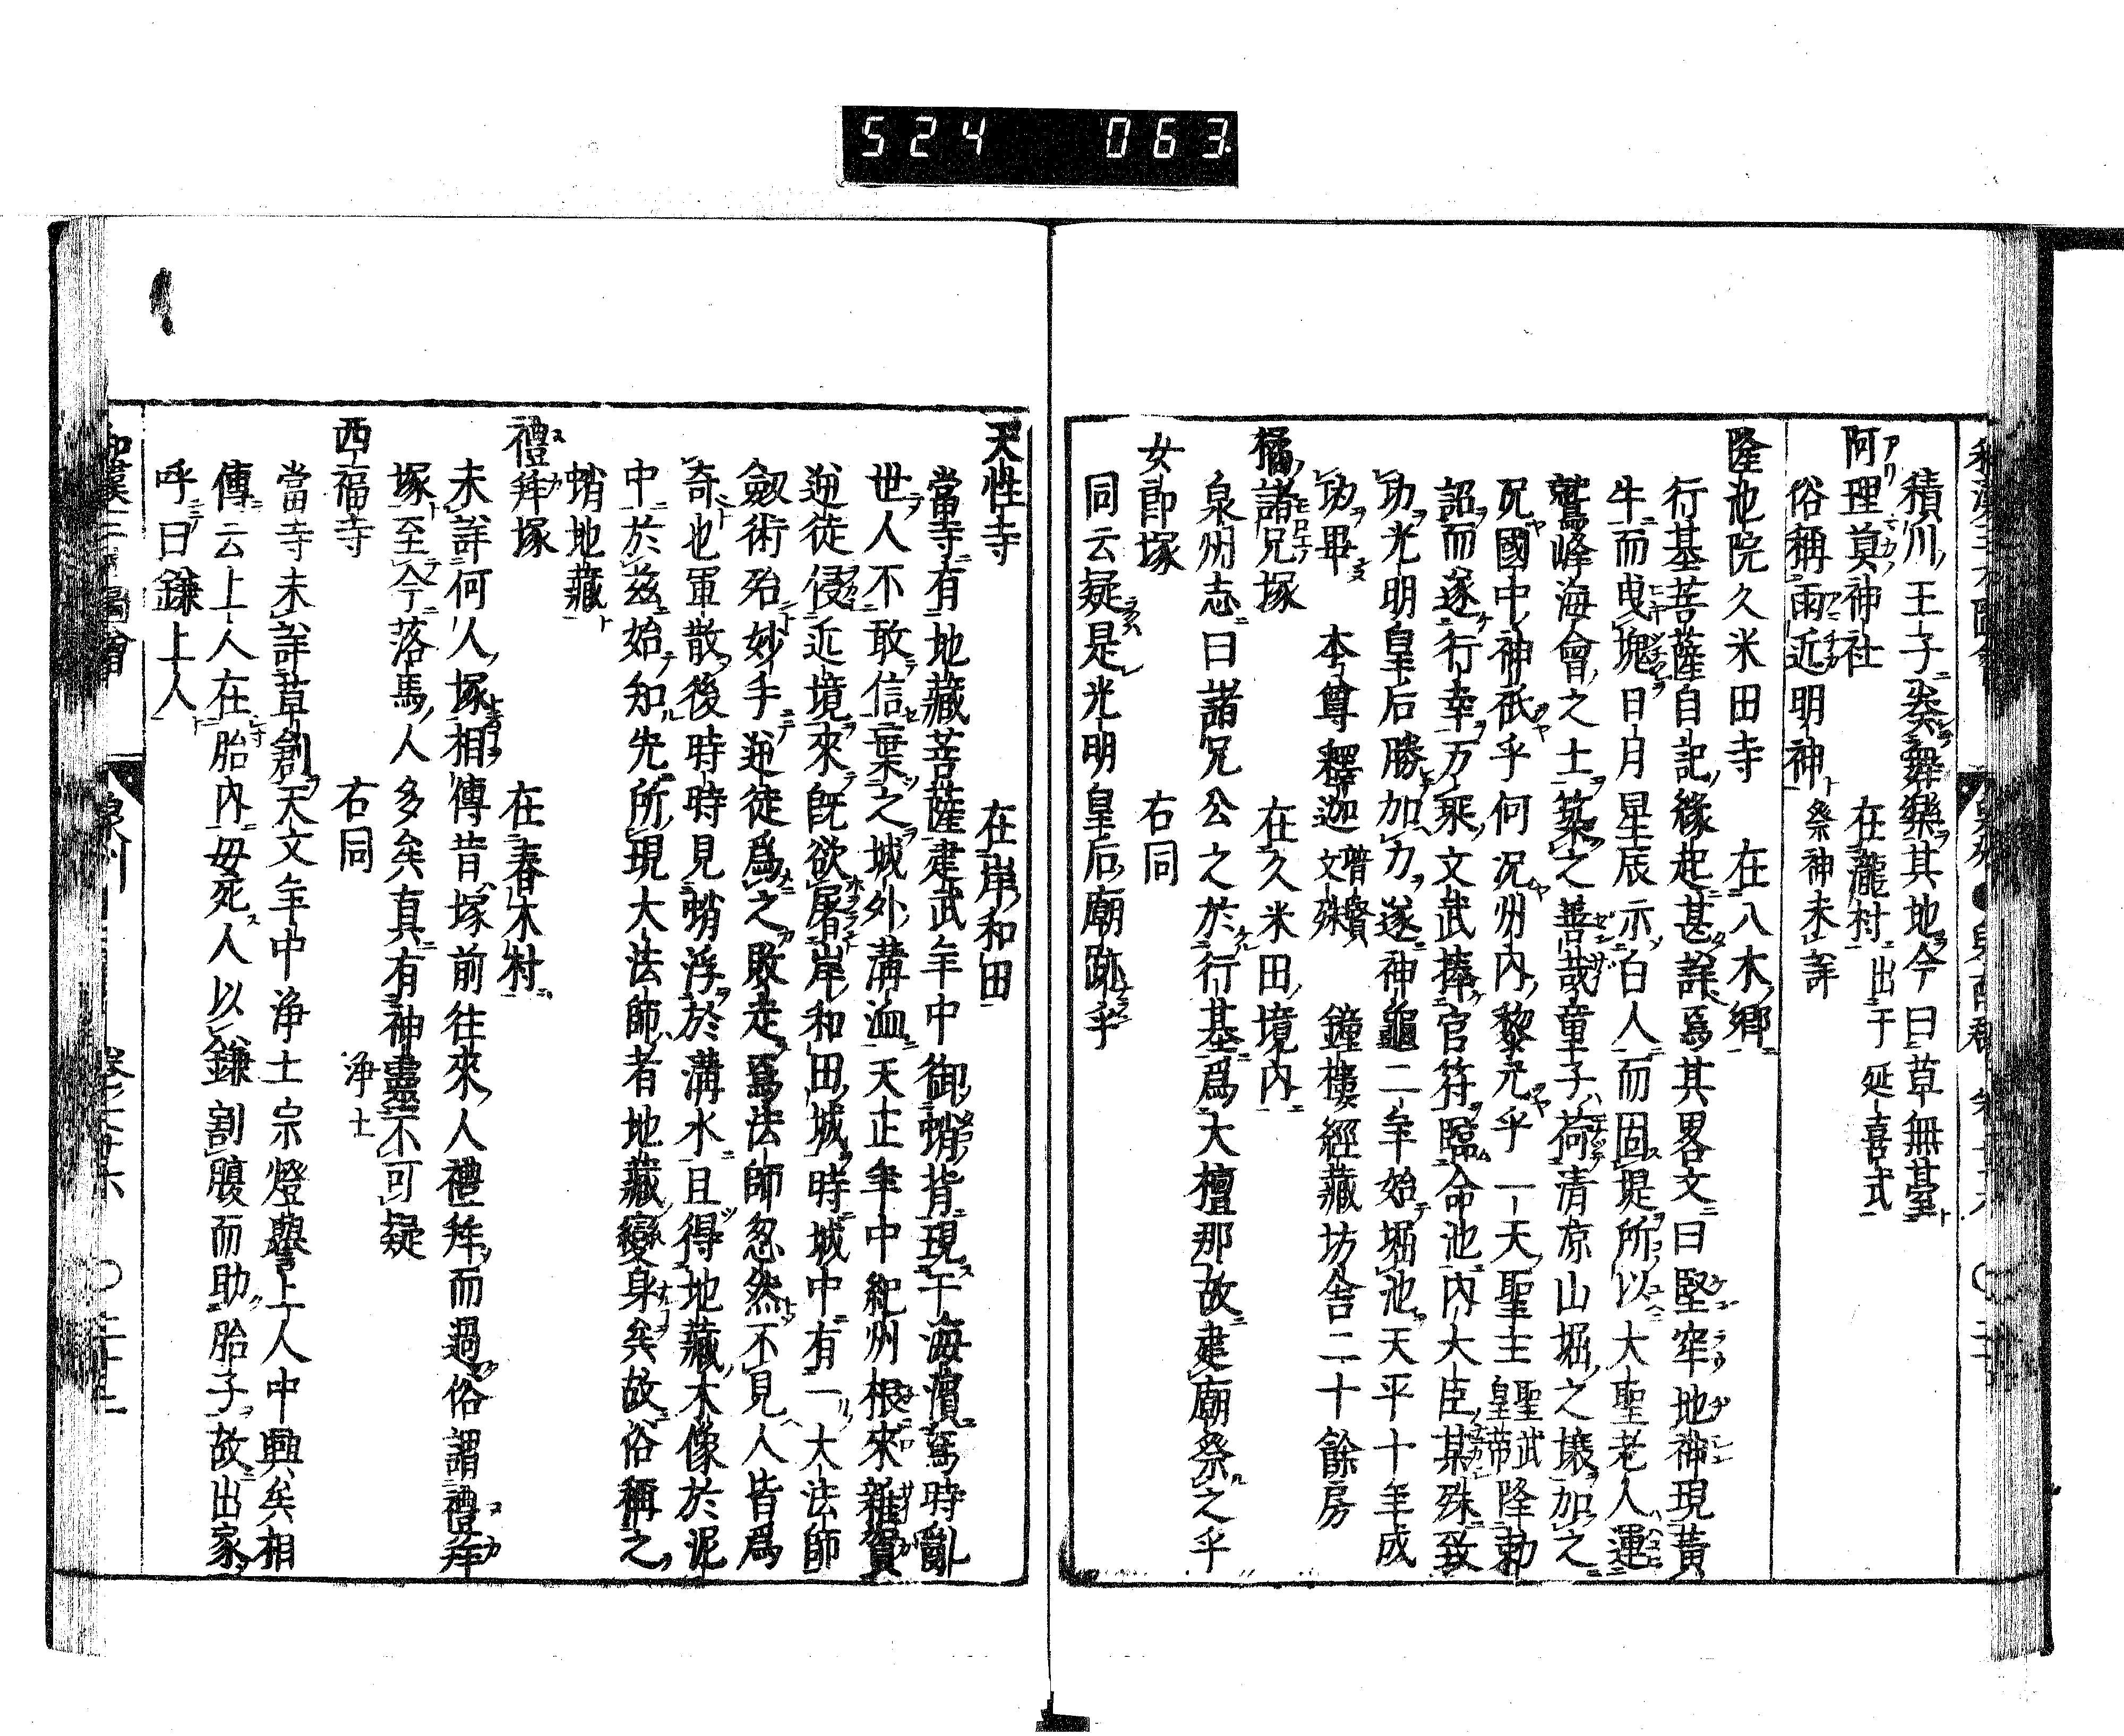 524 063
積川王子奏舞樂其地今曰草無臺
阿理莫神社 在瀧村出于延喜式
俗稱雨近明神 祭神未詳
隆池院久米田寺 在八木郷
行基菩薩自記縁起甚詳焉其畧文曰堅牢地神現黃
牛而曳塊日月星辰示白人而固堤所以大聖老人運
鷲峰海會之土築之善哉童子荷清凉山堀之壌加之
况國中神祇乎何况州内黎元乎一天聖主聖武皇帝降勅
詔而遂行幸万乘文武捧官符臨命池内大臣某殊致
功光明皇后勝加力遂神龜二年始堀池天平十年成
功畢 本尊釋迦 普賢文殊 鐘樓經藏坊舎二十餘房
橘諸兄塚 在久米田境内
泉州志曰諸兄公之於行基爲大檀那故建廟祭之乎
女郎塚 右同
同云疑是光明皇后廟跡乎
天性寺 在岸和田
當寺有地藏菩薩建武年中御蛸背現于海濱焉時亂
世人不敢信棄之城外溝洫天正年中紀州根來雜賀
逆徒侵近境來旣欲屠岸和田城時城中有一大法師
劔術殆妙手逆徒爲之敗走焉法師忽然不見人皆爲
奇也軍散後時時見蛸浮於溝水且得地藏木像於泥
中於茲始知先所現大法師者地藏變身矣故俗稱之
蛸地藏
禮拜塚 在春木村
未詳何人塚相傳昔塚前往來人禮拜而過俗謂禮拜
塚至今落馬人多矣真有神靈不可疑
西福寺 右同 浄土
當寺未詳草創天文年中浄土宗燈譽上人中興矣相
傳云上人在胎内毋死人以鎌割腹而助胎子故出家
呼曰鎌上人